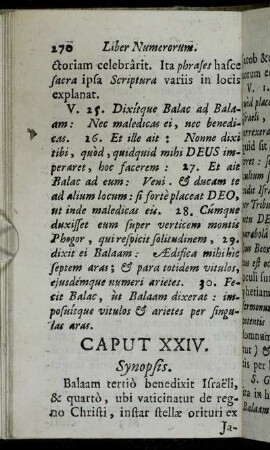 270 Liber Numerorum.
ctoriam celebrârit. Ita phrases hasce
sacra ipsa Scriptura variis in locis
explanat.
V. 25. Dixítque Balac ad Bala-
am: Nec maledicas ei, nec benedi-
cas. 26. Et ille ait: Nonne dixi
tibi, quòd, quidquid mihi DEUS im-
peraret, hoc facerem: 27. Et ait
Balac ad eum: Veni. & ducam te
ad alium locum: si fortè placeat DEO,
ut inde maledicas eis. 28. Cúmque
duxisset eum super verticem montis
Phogor, qui respicit solitudinem, 29.
dixit ei Balaam: Ædifica mihi hîc
septem aras; & para totidem vitulos,
ejusdémque numeri arietes. 30. Fe-
cit Balac, ùt Balaam dixerat: im-
posuitque vitulos & arietes per singu-
las aras.
CAPUT XXIV.
Synopsis.
Balaam tertiò benedixit Israëli,
& quartò, ubi vaticinatur de reg-
no Christi, instar stellæ orituri ex
Ja-